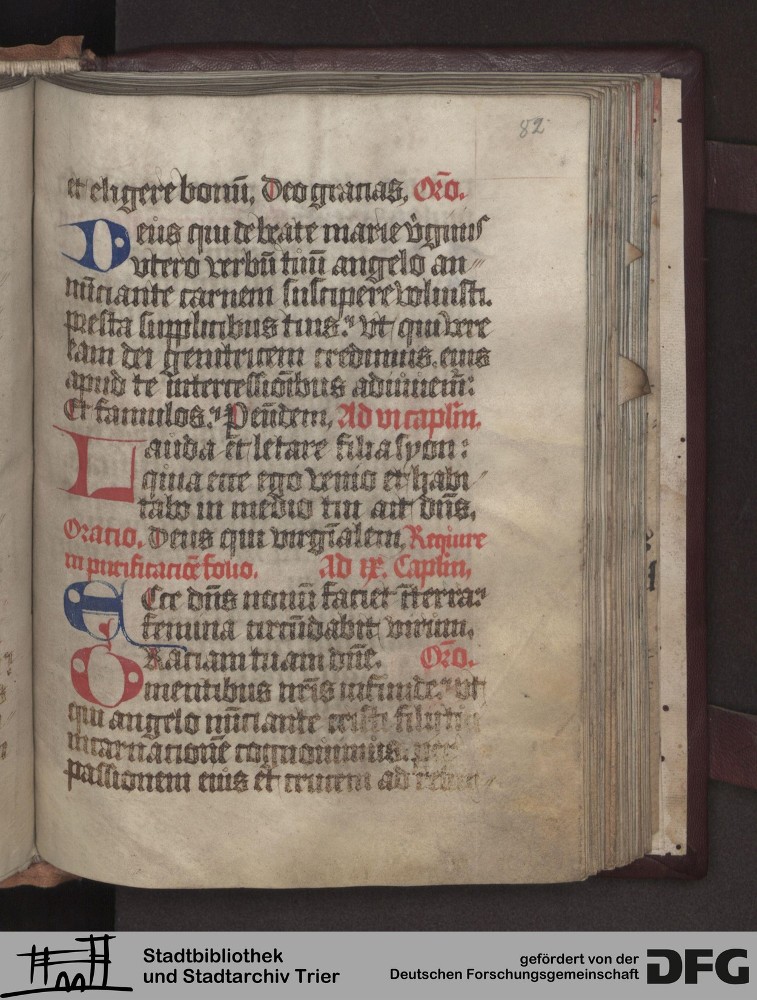 82
et eligere bonū. Deo gracias. Oro̅.
Deus qui de beate marie v̇ginis
vtero verbū tuū angelo an
nūciante carnem suscipere voluisti.
presta supplicibus tuis. vt qui vere
eam dei genitricem credimus. eius
apud te intercessioībus adiuuem̄:
Et famulos. Ad vi caplm̄.
Lauda et letare filia syon:
quia ecce ego venio et habi
tabo in medio tui ait dn̄s.
Oracio. Deus qui virgīalem. Require
in purificacōe folio. Ad ix. Caplm̄.
Ecce dn̄s nouū faciet ī terra:
femina circūdabit virum.
Graciam tuam dn̄e. Oro̅.
mentibus nr̄is infunde: vt
qui angelo nūciante cristi filij tui
incarnacionē cognouimus. per
passionem eius et crucem ad
Stadtbibliothek
und Stadtarchiv Trier
gefördert von der
Deutschen Forschungsgemeinschaft
DFG